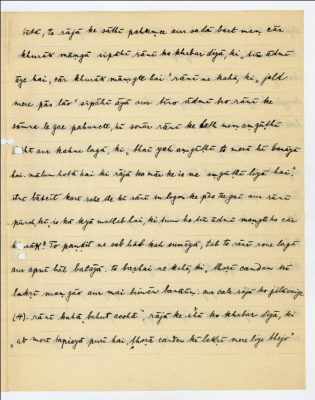 betā, to rājā ke sāthī pahũnce aur sadā bart men, cār
khurāk māngā sipāhī rānī ko khabar diyā, ki, tīn ādmī
āye hai, cār khurāk māngte hai" rānī ne kahā, ki, "jald
mere pās lāo" sipāhī āyā aur tīno ādmī ko rānī ke
sāmne le gae pahuncte, hī sonār rānī ke hāth men anguthī
aur kahne lagā, ki, "bhāī yah anguthī to merā hī banāyā
hai. mālum hotā hai ki rājā ko mār ke is ne anguthī liyā hai."
itnā bātcīt kare rahe the ki rānī in logon ke pās ā gaī aur rānī
puchh ki, is kā kyā matlab hai, ki tum ko, tīn ādmī māngtā ko cār
khurāk? To pandit ne sab hāl kah sunāyā, tab to rānī rone lagī
aur apnī hāl batāyā. to barhaī ne kahā, ki, "thoṛī candan kī
lakṛī mangāo aur mai bimān banāūn. aur cale rājā ko jilāwenge
(4). rānī kahā "bahut acchā", rājā ke ihā ko khabar diyā, ki
"ab merī tapisyā purī hai, thoṛā candan kī lakṛī mere liye bhejo"